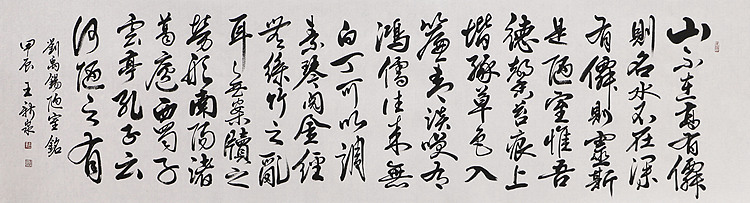 山不在高有僊
則名水不在深
有僊則靈斯
是陋室惟吾
德馨苔痕上
堦綠草色入
簾青談笑有
鴻儒往来無
白丁可以調
素琴閱金經
無絲竹之亂
耳無案牘之
勞形南陽諸
葛廬西蜀子
雲亭孔子云
何陋之有
劉禹錫陋室銘
甲辰 王新泉